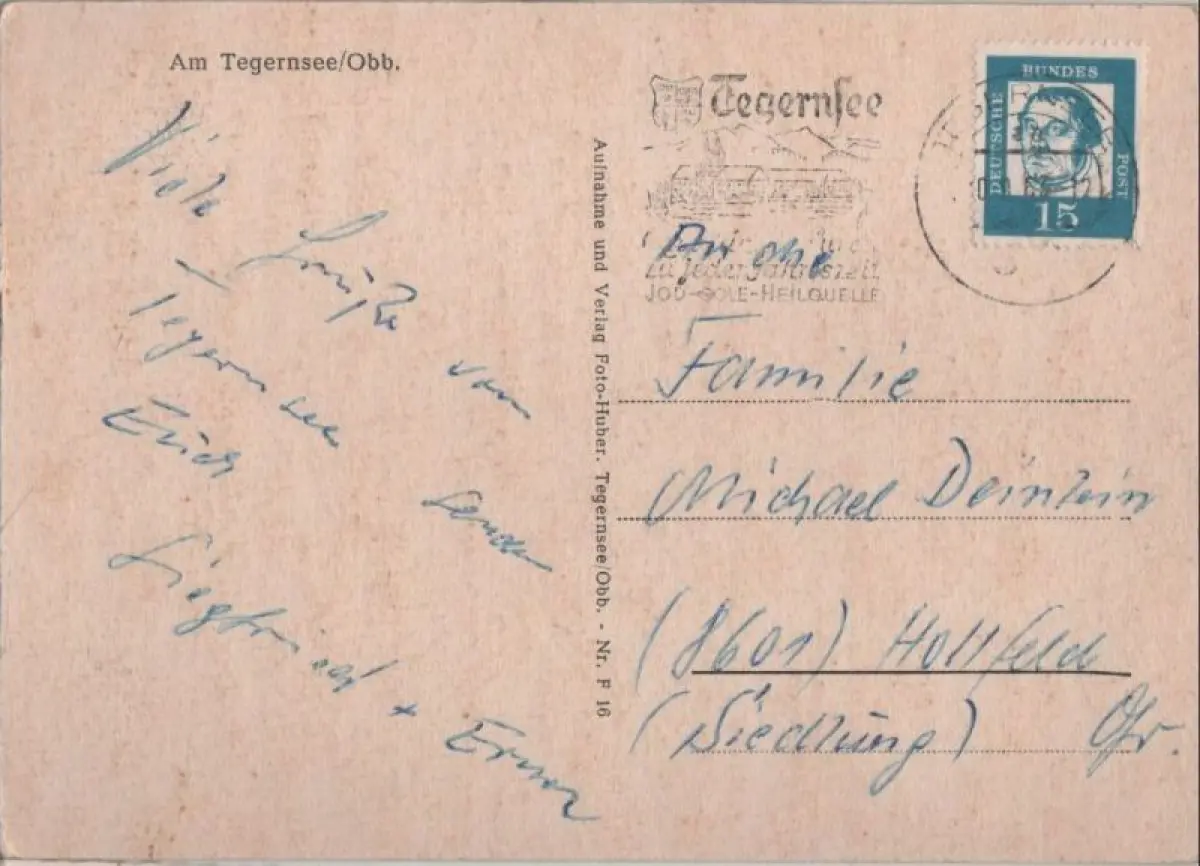 Am Tegernsee/Obb.
Viele
Grüße vom
Tegernsee
senden
Erich
Siegfried + Erna
Aufnahme und Verlag Foto-Huber. Tegernsee/Obb. - Nr. F 16
Tegernsee
zu jeder Jahreszeit
JOD-SOLE-HEILQUELLE
DEUTSCHE BUNDES POST
15
An die
Familie
Michael Deinlein
(8601) Hollfeld
(Siedlung) Ofr.